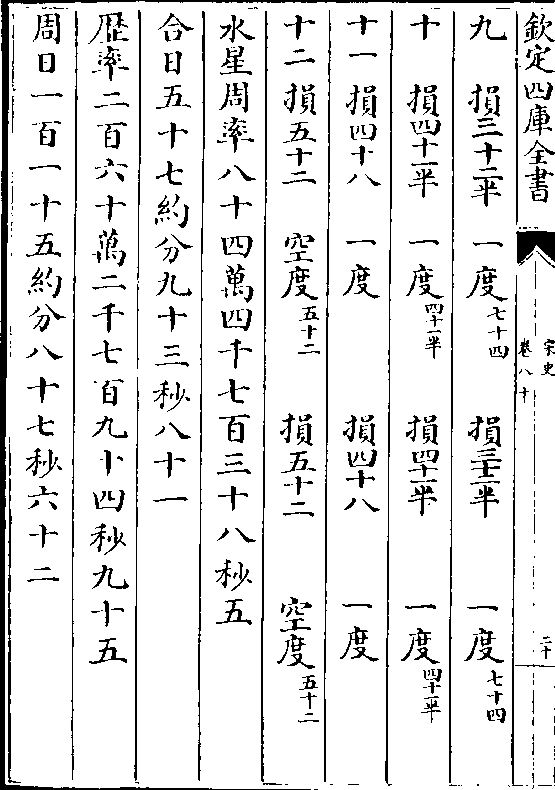 欽定四庫全書
宋史
卷八十
二十
九 損三十二半 一度七十四 損三十二半 一度七十四
十 損四十一半 一度四十一半 損四十一半 一度四十一半
十一 損四十八 一度 損四十八 一度
十二 損五十二 空度五十二 損五十二 空度五十二
水星周率八十四萬四千七百三十八秒五
合日五十七約分九十三秒八十一
歴率二百六十萬二千七百九十四秒九十五
周日一百一十五約分八十七秒六十二